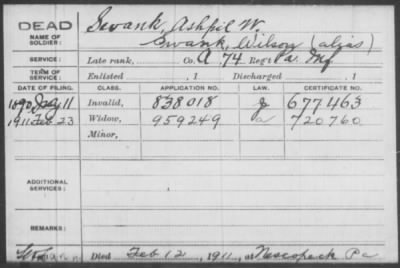 DEAD Swank, Ashpil W.
NAME OF SOLDIER: Swank, Wilson (alias)
SERVICE: Late rank, Co. A 74 Reg't Pa. Inf
TERM OF SERVICE: Enlisted , 1 Discharged , 1
DATE OF FILING. CLASS. APPLICATION NO. LAW. CERTIFICATE NO.
1890 11 Invalid, 838018 677463
1911 Feb 23 Widow, 959249 720760
Minor,
ADDITIONAL SERVICES:
REMARKS:
Died Feb 12, 1911, at Nescopeck Pa